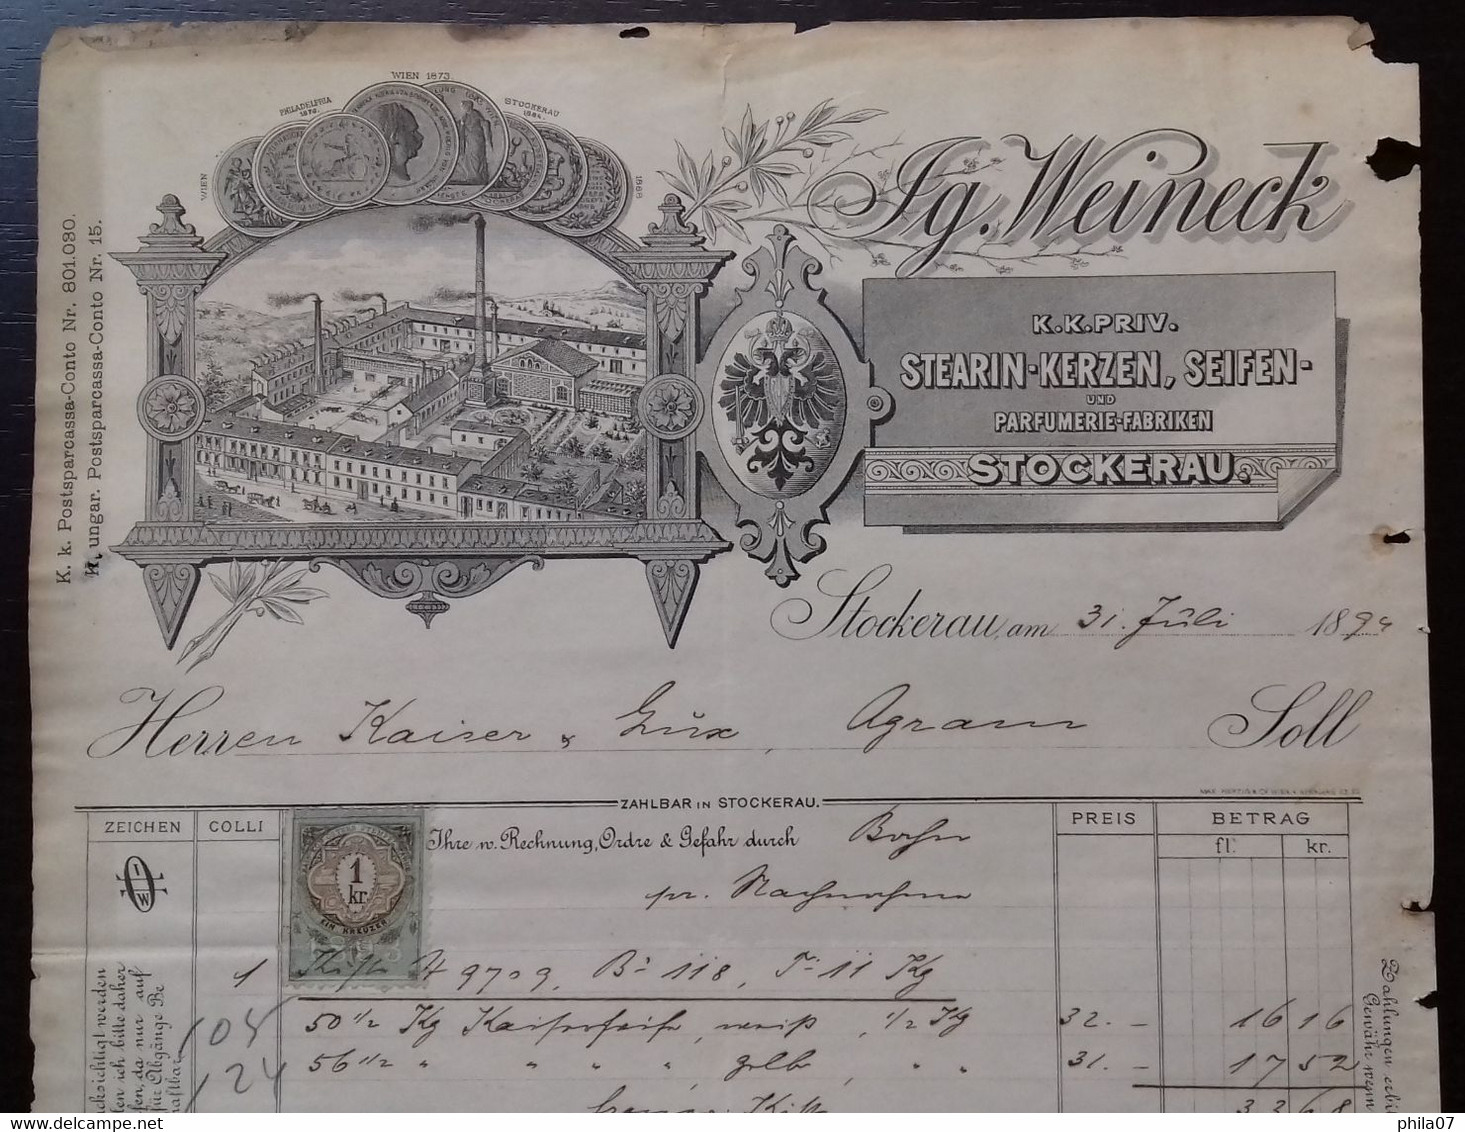 WIEN 1873.
PHILADELFIA
1876.
STOCKERAU
1884.
WIEN
1888
K. k. Postsparcassa-Conto Nr. 801.030.
K. ungar. Postsparcassa-Conto Nr. 15.
Ig. Weineck
K.K. PRIV.
STEARIN-KERZEN, SEIFEN-
UND
PARFUMERIE-FABRIKEN
STOCKERAU.
Stockerau, am 31. Juli 1894
Herren Kaiser & Lux, Agram Soll
ZAHLBAR IN STOCKERAU.
ZEICHEN COLLI PREIS BETRAG
fl. kr.
Ihre w. Rechnung, Ordre & Gefahr durch Bahn
pr. Nachnahme
IW
1 kr.
EIN KREUZER
1 Kiste # 9709, B: 118, T: 11 Kg
50 1/2 Kg Kaiserseife, weiß, 1/2 Kg 32. – 16 16
105
56 1/2 " " " , gelb, " " 31. – 17 52
124
Kiste 33 68
cksichtigt werden
len ich bitte daher
fen, da nur auf
für Abgänge Be
haftbar
Zahlungen
Gewähr
phila07